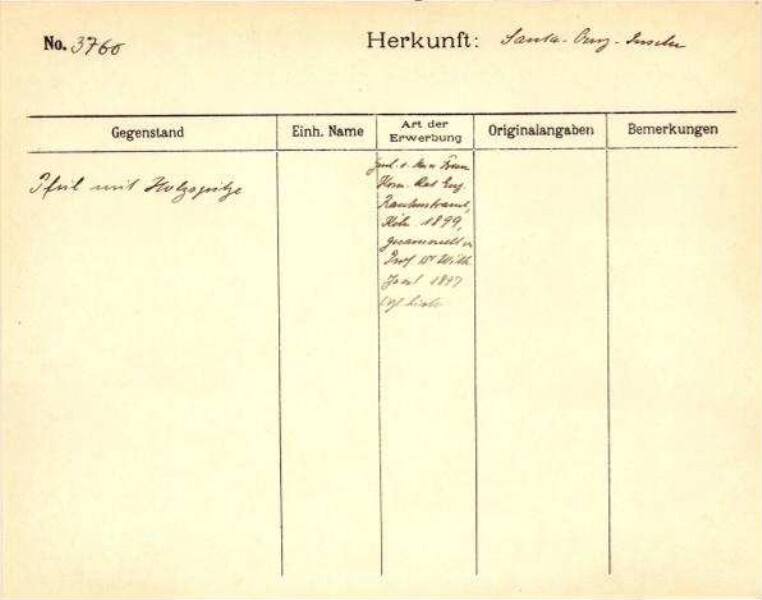 No. 3760
Herkunft: Santa-Cruz-Inseln
Gegenstand
Einh. Name
Art der
Erwerbung
Originalangaben
Bemerkungen
Pfeil mit Holzspitze
Frau
Kom. Rat Eug.
Rautenstrauch,
Köln 1899,
gesammelt v.
Prof Dr Wilh.
Joest 1897